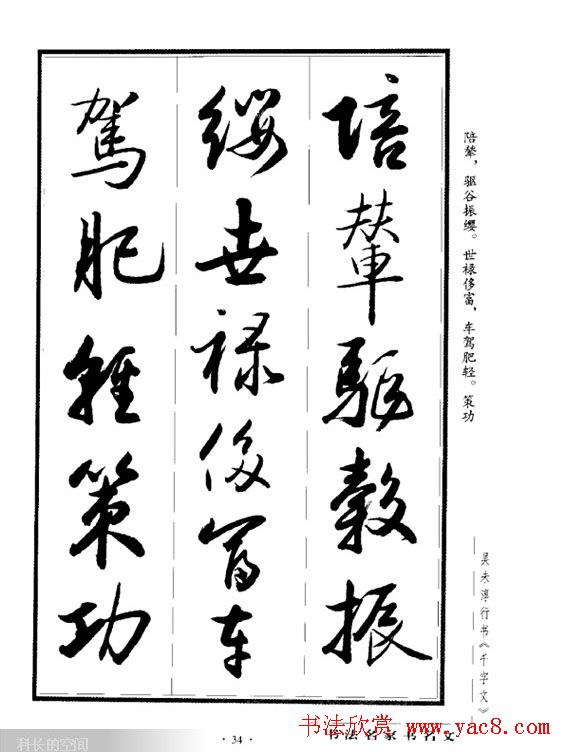 陪辇，驱谷振缨。世禄侈富，车驾肥轻。策功
吴未淳行书《千字文》
陪輦驅轂振
纓世祿侈富车
駕肥輕策功
·34·
书法名家书名文
书法欣赏 www.yac8.com
科长的空间